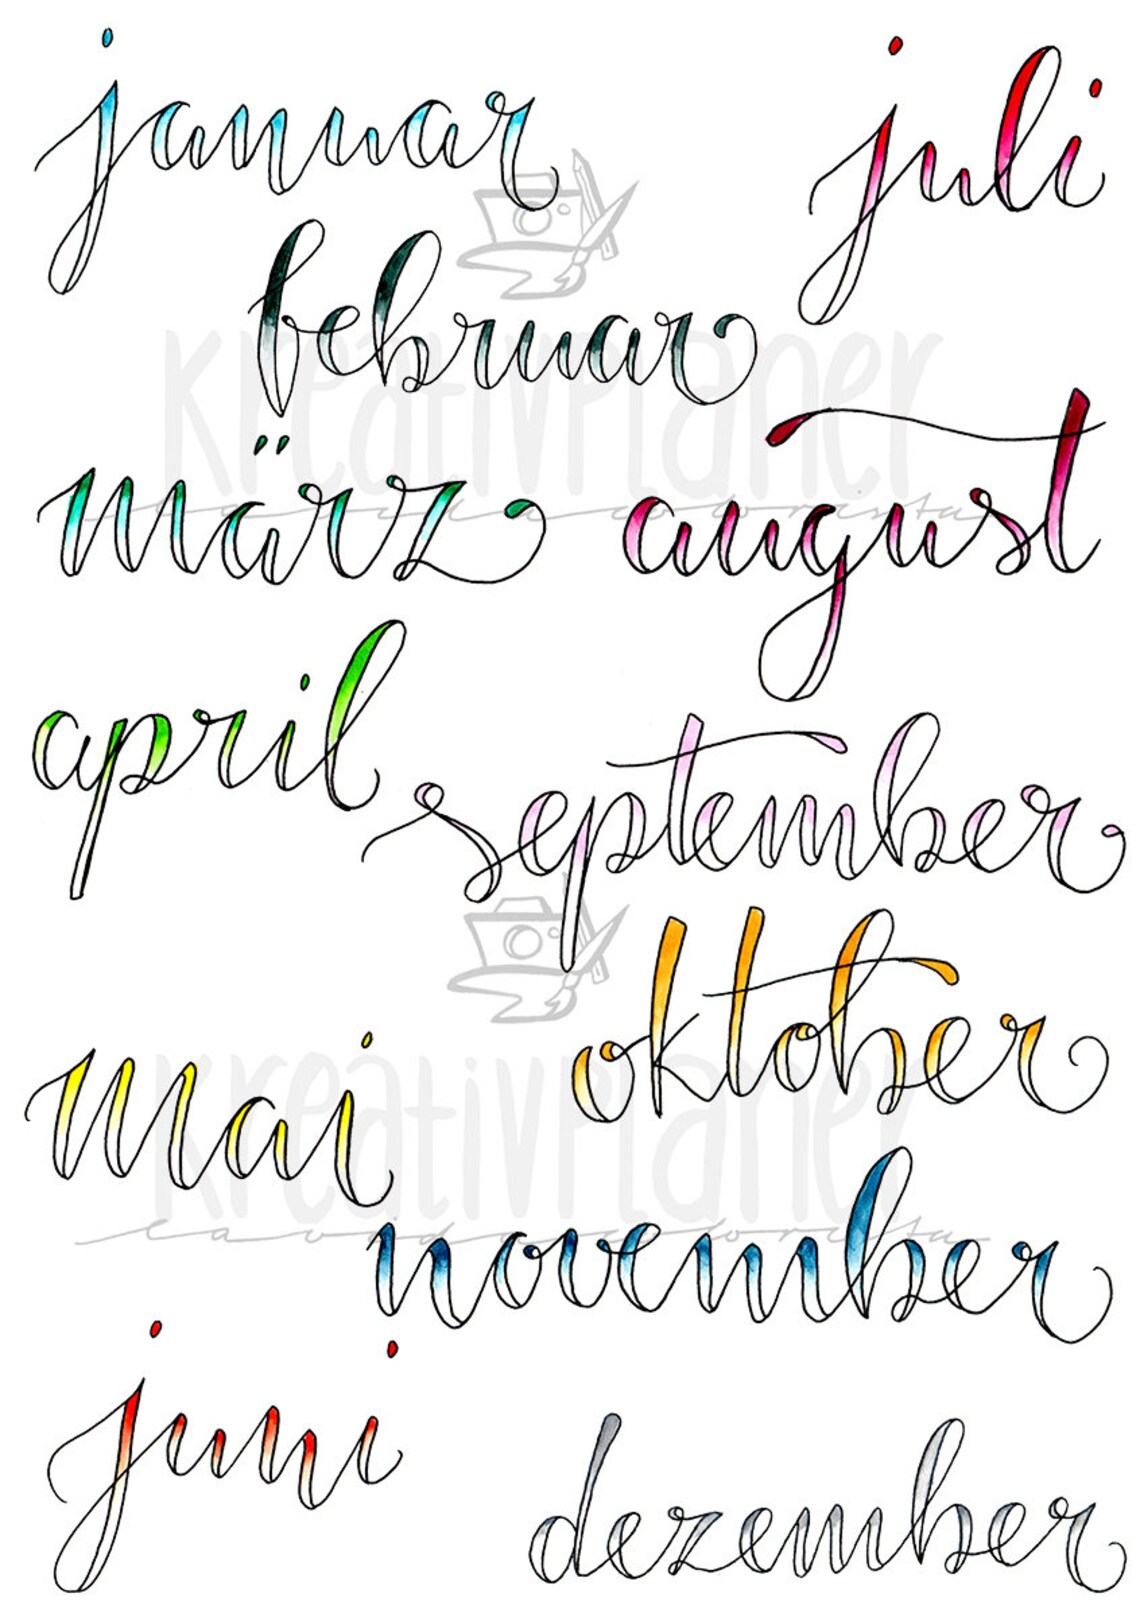 januar
februar
märz
april
mai
juni
juli
august
september
oktober
november
dezember
kreativPlaner
lavidacolorista
kreativPlaner
lavidacolorista